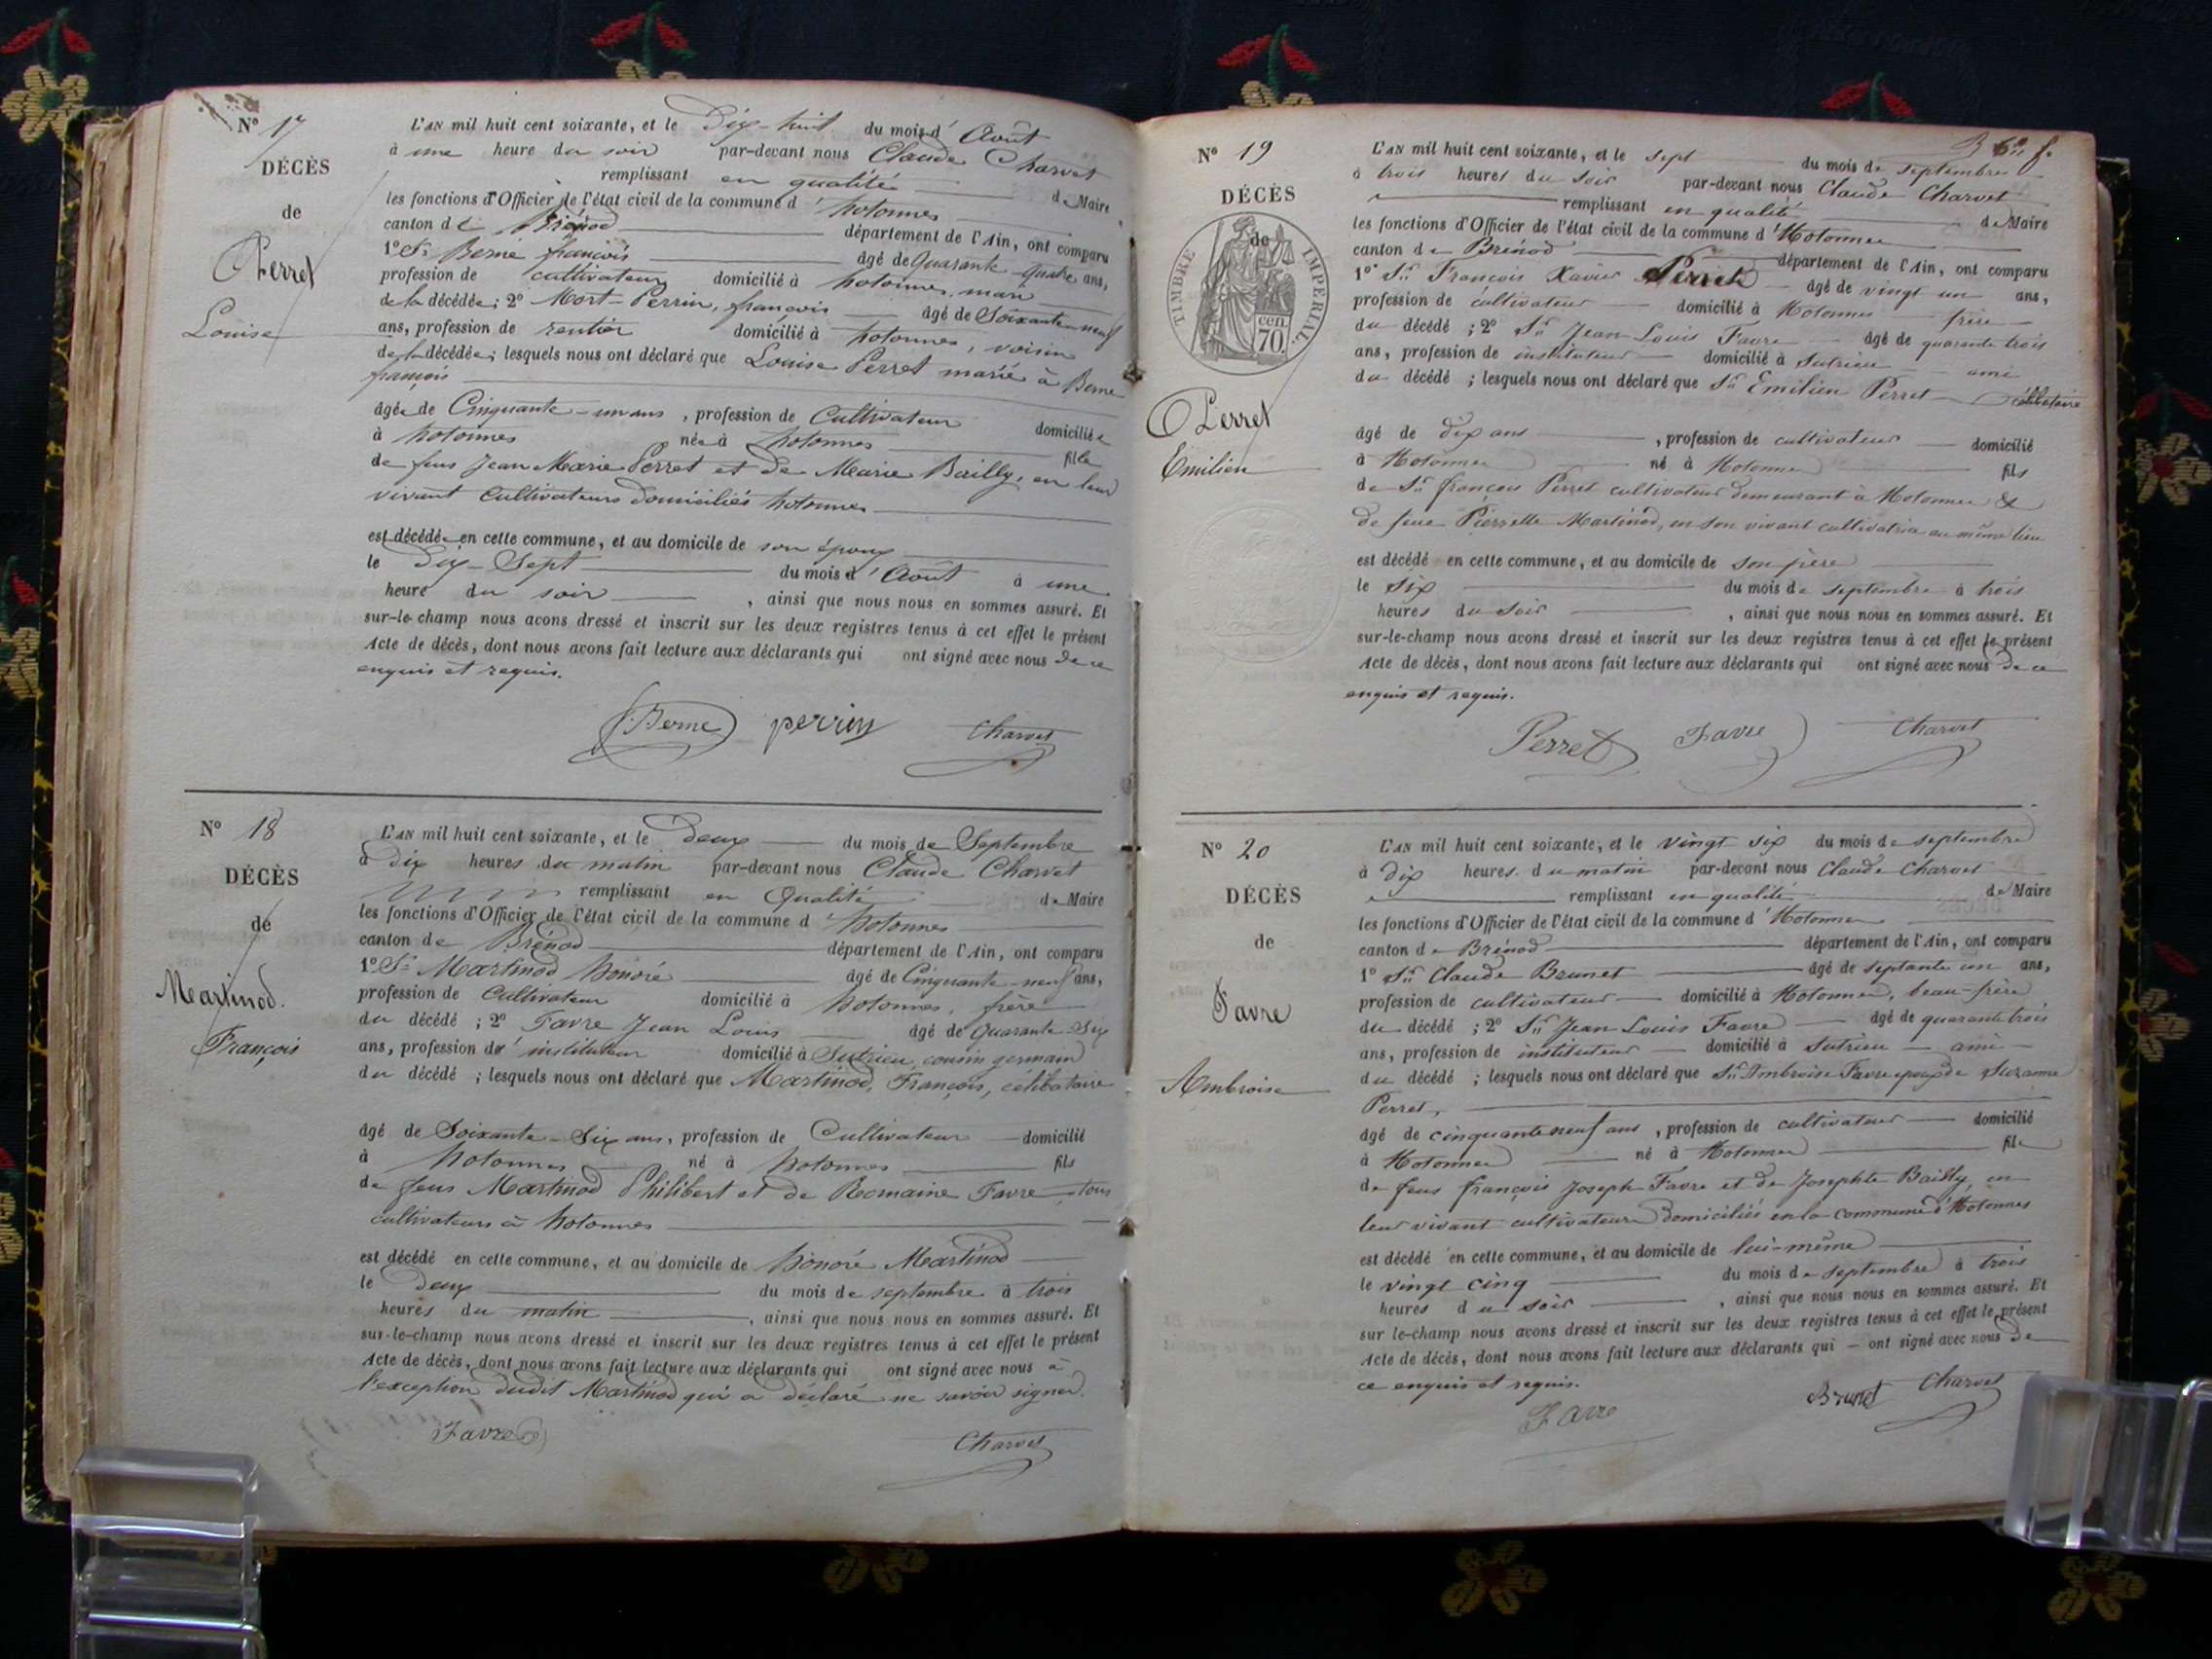 N° 17
DÉCÈS
de
Perret
Louise
L'AN mil huit cent soixante, et le Dix-huit du mois d' Août
à une heure du soir par-devant nous Claude Charvet
remplissant en qualité de Maire
les fonctions d'Officier de l'état civil de la commune d'hotonnes
canton de Brénod département de l'Ain, ont comparu
1° Sr Berne françois âgé de Quarante-quatre ans,
profession de cultivateur domicilié à hotonnes, mari
de la décédée; 2° Mort-Perrin, françois âgé de Soixante-neuf
ans, profession de rentier domicilié à hotonnes, voisin
de la décédée; lesquels nous ont déclaré que Louise Perret mariée à Berne
françois
âgée de Cinquante-un ans, profession de Cultivateur domiciliée
à hotonnes née à hotonnes fille
de feus Jean Marie Perret et de Marie Bailly, en leur
vivant cultivateurs domiciliés hotonnes
est décédée en cette commune, et au domicile de son époux
le Dix-Sept du mois d'Août à une
heure du soir, ainsi que nous nous en sommes assuré. Et
sur-le-champ nous avons dressé et inscrit sur les deux registres tenus à cet effet le présent
Acte de décès, dont nous avons fait lecture aux déclarants qui ont signé avec nous de ce
enquis et requis.
Berne perrin Charvet
N° 18
DÉCÈS
de
Martinod.
François
L'AN mil huit cent soixante, et le Deux du mois de Septembre
à dix heures du matin par-devant nous Claude Charvet
remplissant en Qualité de Maire
les fonctions d'Officier de l'état civil de la commune d'hotonnes
canton de Brénod département de l'Ain, ont comparu
1° Sr Martinod honoré âgé de Cinquante-neuf ans,
profession de Cultivateur domicilié à hotonnes, frère
du décédé; 2° Favre Jean Louis âgé de Quarante-Six
ans, profession d'instituteur domicilié à Sutrieu, cousin germain
du décédé; lesquels nous ont déclaré que Martinod, François, célibataire
âgé de Soixante-Six ans, profession de Cultivateur domicilié
à hotonnes né à hotonnes fils
de feus Martinod Philibert et de Romaine Favre tous
cultivateurs à hotonnes
est décédé en cette commune, et au domicile de honoré Martinod
le Deux du mois de septembre à trois
heures du matin, ainsi que nous nous en sommes assuré. Et
sur-le-champ nous avons dressé et inscrit sur les deux registres tenus à cet effet le présent
Acte de décès, dont nous avons fait lecture aux déclarants qui ont signé avec nous à
l'exception dudit Martinod qui a déclaré ne savoir signer.
Favre Charvet
N° 19
DÉCÈS
de
TIMBRE IMPERIAL.
cen
70.
Perret
Emilien
L'AN mil huit cent soixante, et le sept du mois de septembre
à trois heures du soir par-devant nous Claude Charvet
remplissant en qualité de Maire
les fonctions d'Officier de l'état civil de la commune d'Hotonnes
canton de Brénod département de l'Ain, ont comparu
1° Sr François Xavier Perret âgé de vingt un ans,
profession de cultivateur domicilié à Hotonnes frère
du décédé; 2° Sr Jean Louis Favre âgé de quarante trois
ans, profession de instituteur domicilié à Sutrieu ami
du décédé; lesquels nous ont déclaré que Sr Emilien Perret célibataire
âgé de dix ans, profession de cultivateur domicilié
à Hotonnes né à Hotonnes fils
de Sr françois Perret cultivateur demeurant à Hotonnes &
de feue Pierrette Martinod, en son vivant cultivatrice au même lieu
est décédé en cette commune, et au domicile de son père
le six du mois de septembre à trois
heures du soir, ainsi que nous nous en sommes assuré. Et
sur-le-champ nous avons dressé et inscrit sur les deux registres tenus à cet effet le présent
Acte de décès, dont nous avons fait lecture aux déclarants qui ont signé avec nous de ce
enquis et requis.
Perret Favre Charvet
N° 20
DÉCÈS
de
Favre
Ambroise
L'AN mil huit cent soixante, et le vingt six du mois de septembre
à dix heures du matin par-devant nous Claude Charvet
remplissant en qualité de Maire
les fonctions d'Officier de l'état civil de la commune d'Hotonnes
canton de Brénod département de l'Ain, ont comparu
1° Sr Claude Brunet âgé de septante un ans,
profession de cultivateur domicilié à Hotonnes, beau-frère
du décédé; 2° Sr Jean Louis Favre âgé de quarante trois
ans, profession de instituteur domicilié à Sutrieu ami
du décédé; lesquels nous ont déclaré que Sr Ambroise Favre époux de Suzanne
Perret,
âgé de cinquante neuf ans, profession de cultivateur domicilié
à Hotonnes né à Hotonnes fils
de feus françois Joseph Favre et de Josephte Bailly, en
leur vivant cultivateurs domiciliés en la commune d'Hotonnes
est décédé en cette commune, et au domicile de lui-même
le vingt cinq du mois de septembre à trois
heures du soir, ainsi que nous nous en sommes assuré. Et
sur le-champ nous avons dressé et inscrit sur les deux registres tenus à cet effet le présent
Acte de décès, dont nous avons fait lecture aux déclarants qui ont signé avec nous De
ce enquis et requis.
Favre Brunet Charvet